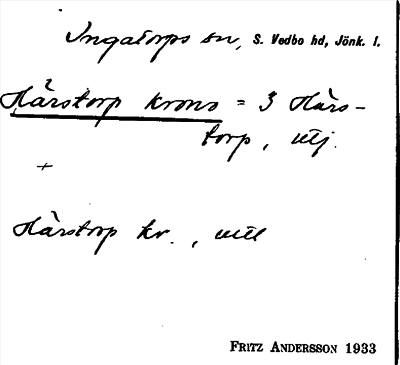 Ingatorps sn, S. Vedbo hd, Jönk. l.
Hårstorp krono = 3 Hårs-
torp, utj.
+
Hårstorp kr., utl
FRITZ ANDERSSON 1933